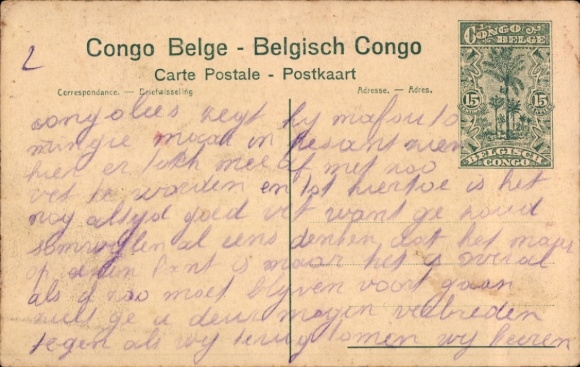 2
Congo Belge - Belgisch Congo
Carte Postale - Postkaart
Correspondance. — Briefwisseling
Adresse. — Adres.
CONGO BELGE
1 1
15 15
1 1
BELGISCH CONGO
zegt hy mafouta
mingie maar in
hier er toch mee of met zoo
vet te worden en tot hiertoe is het
nog altyd goed vet want ge zoud
somwylen al eens denken dat het maar
op eenen kant is maar het is overal
als u zoo moet blyven voort gaan
zult ge u deur mogen verbreden
tegen als wy terug komen wy keeren